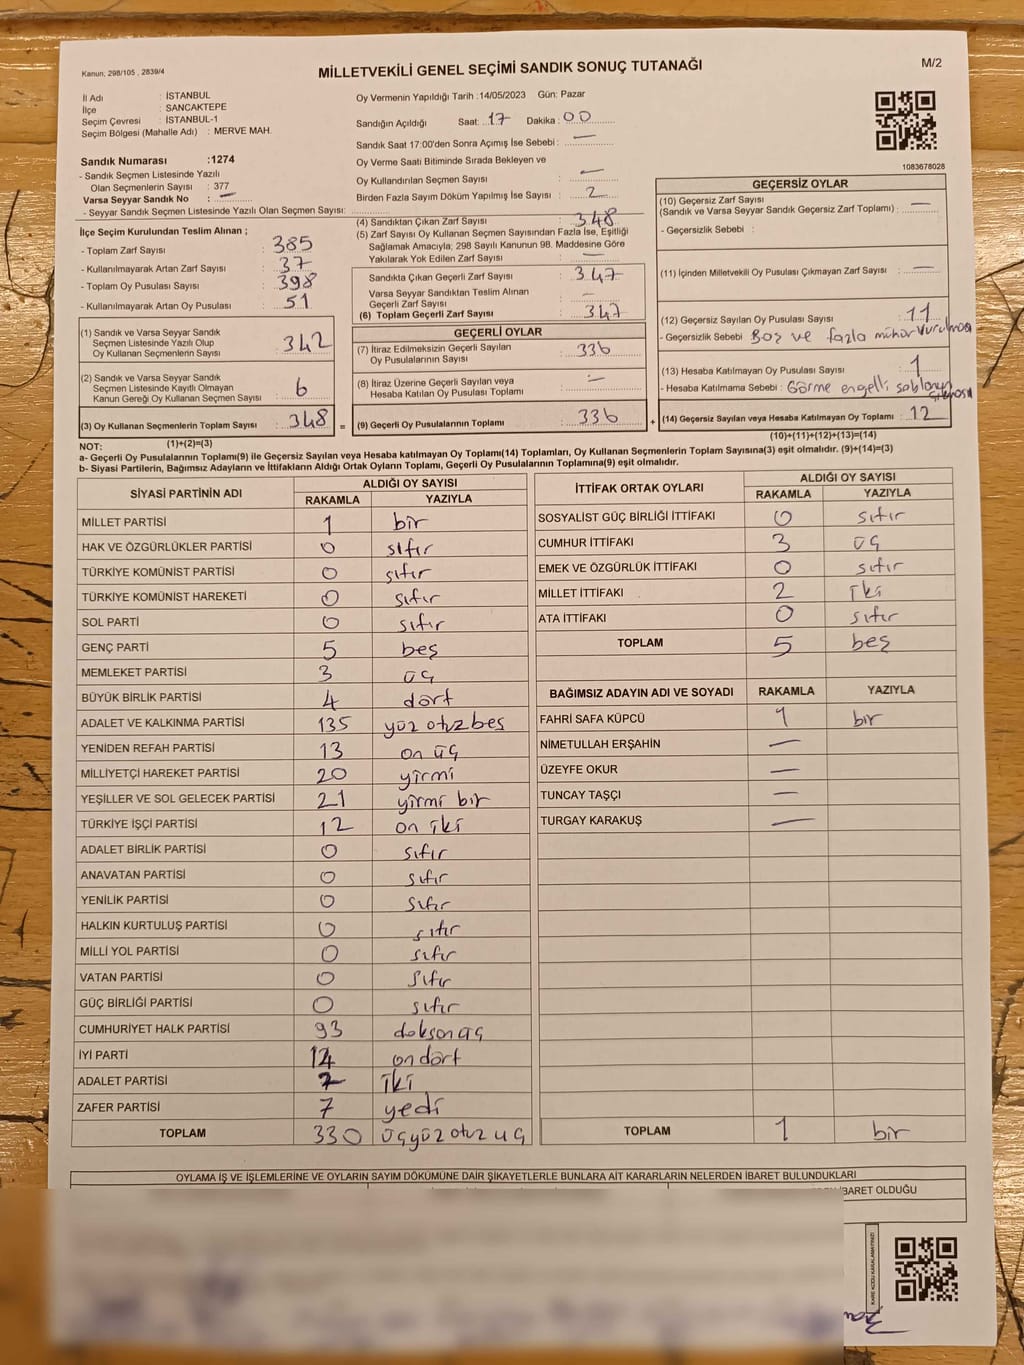 Kanun, 298/105 , 2839/4
MİLLETVEKİLİ GENEL SEÇİMİ SANDIK SONUÇ TUTANAĞI
M/2
İl Adı : İSTANBUL
İlçe : SANCAKTEPE
Seçim Çevresi : İSTANBUL-1
Seçim Bölgesi (Mahalle Adı) : MERVE MAH.
Sandık Numarası :1274
- Sandık Seçmen Listesinde Yazılı
Olan Seçmenlerin Sayısı : 377
Varsa Seyyar Sandık No : —
- Seyyar Sandık Seçmen Listesinde Yazılı Olan Seçmen Sayısı:
İlçe Seçim Kurulundan Teslim Alınan ;
- Toplam Zarf Sayısı : 385
- Kullanılmayarak Artan Zarf Sayısı : 37
- Toplam Oy Pusulası Sayısı : 398
- Kullanılmayarak Artan Oy Pusulası : 51
(1) Sandık ve Varsa Seyyar Sandık
Seçmen Listesinde Yazılı Olup
Oy Kullanan Seçmenlerin Sayısı : 342
(2) Sandık ve Varsa Seyyar Sandık
Seçmen Listesinde Kayıtlı Olmayan
Kanun Gereği Oy Kullanan Seçmen Sayısı : 6
(3) Oy Kullanan Seçmenlerin Toplam Sayısı : 348 =
(1)+(2)=(3)
Oy Vermenin Yapıldığı Tarih :14/05/2023 Gün: Pazar
Sandığın Açıldığı Saat: 17 Dakika: 00
Sandık Saat 17:00'den Sonra Açımış İse Sebebi : —
Oy Verme Saati Bitiminde Sırada Bekleyen ve
Oy Kullandırılan Seçmen Sayısı : —
Birden Fazla Sayım Döküm Yapılmış İse Sayısı : 2
(4) Sandıktan Çıkan Zarf Sayısı : 348
(5) Zarf Sayısı Oy Kullanan Seçmen Sayısından Fazla İse, Eşitliği
Sağlamak Amacıyla; 298 Sayılı Kanunun 98. Maddesine Göre
Yakılarak Yok Edilen Zarf Sayısı : —
Sandıkta Çıkan Geçerli Zarf Sayısı : 347
Varsa Seyyar Sandıktan Teslim Alınan
Geçerli Zarf Sayısı : —
(6) Toplam Geçerli Zarf Sayısı : 347
GEÇERLİ OYLAR
(7) İtiraz Edilmeksizin Geçerli Sayılan
Oy Pusulalarının Sayısı : 336
(8) İtiraz Üzerine Geçerli Sayılan veya
Hesaba Katılan Oy Pusulası Toplamı : —
(9) Geçerli Oy Pusulalarının Toplamı : 336 +
1083678028
GEÇERSİZ OYLAR
(10) Geçersiz Zarf Sayısı
(Sandık ve Varsa Seyyar Sandık Geçersiz Zarf Toplamı) : —
- Geçersizlik Sebebi :
(11) İçinden Milletvekili Oy Pusulası Çıkmayan Zarf Sayısı : —
(12) Geçersiz Sayılan Oy Pusulası Sayısı : 11
- Geçersizlik Sebebi : Boş ve fazla mühür vurulması
(13) Hesaba Katılmayan Oy Pusulası Sayısı : 1
- Hesaba Katılmama Sebebi : Görme engelli
(14) Geçersiz Sayılan veya Hesaba Katılmayan Oy Toplamı : 12
(10)+(11)+(12)+(13)=(14)
NOT:
a- Geçerli Oy Pusulalarının Toplamı(9) ile Geçersiz Sayılan veya Hesaba katılmayan Oy Toplamı(14) Toplamları, Oy Kullanan Seçmenlerin Toplam Sayısına(3) eşit olmalıdır. (9)+(14)=(3)
b- Siyasi Partilerin, Bağımsız Adayların ve İttifakların Aldığı Ortak Oyların Toplamı, Geçerli Oy Pusulalarının Toplamına(9) eşit olmalıdır.
SİYASİ PARTİNİN ADI ALDIĞI OY SAYISI
RAKAMLA YAZIYLA
MİLLET PARTİSİ 1 bir
HAK VE ÖZGÜRLÜKLER PARTİSİ 0 sıfır
TÜRKİYE KOMÜNİST PARTİSİ 0 sıfır
TÜRKİYE KOMÜNİST HAREKETİ 0 sıfır
SOL PARTİ 0 sıfır
GENÇ PARTİ 5 beş
MEMLEKET PARTİSİ 3 üç
BÜYÜK BİRLİK PARTİSİ 4 dört
ADALET VE KALKINMA PARTİSİ 135 yüz otuz beş
YENİDEN REFAH PARTİSİ 13 on üç
MİLLİYETÇİ HAREKET PARTİSİ 20 yirmi
YEŞİLLER VE SOL GELECEK PARTİSİ 21 yirmi bir
TÜRKİYE İŞÇİ PARTİSİ 12 on iki
ADALET BİRLİK PARTİSİ 0 sıfır
ANAVATAN PARTİSİ 0 sıfır
YENİLİK PARTİSİ 0 sıfır
HALKIN KURTULUŞ PARTİSİ 0 sıfır
MİLLİ YOL PARTİSİ 0 sıfır
VATAN PARTİSİ 0 sıfır
GÜÇ BİRLİĞİ PARTİSİ 0 sıfır
CUMHURİYET HALK PARTİSİ 93 doksan üç
İYİ PARTİ 14 on dört
ADALET PARTİSİ 2 iki
ZAFER PARTİSİ 7 yedi
TOPLAM 330 üçyüz otuz üç
İTTİFAK ORTAK OYLARI ALDIĞI OY SAYISI
RAKAMLA YAZIYLA
SOSYALİST GÜÇ BİRLİĞİ İTTİFAKI 0 sıfır
CUMHUR İTTİFAKI 3 üç
EMEK VE ÖZGÜRLÜK İTTİFAKI 0 sıfır
MİLLET İTTİFAKI 2 iki
ATA İTTİFAKI 0 sıfır
TOPLAM 5 beş
BAĞIMSIZ ADAYIN ADI VE SOYADI RAKAMLA YAZIYLA
FAHRİ SAFA KÜPCÜ 1 bir
NİMETULLAH ERŞAHİN —
ÜZEYFE OKUR —
TUNCAY TAŞÇI —
TURGAY KARAKUŞ —
TOPLAM 1 bir
OYLAMA İŞ VE İŞLEMLERİNE VE OYLARIN SAYIM DÖKÜMÜNE DAİR ŞİKAYETLERLE BUNLARA AİT KARARLARIN NELERDEN İBARET BULUNDUKLARI
İBARET OLDUĞU
KARE KODU KARALAMAYINIZ!